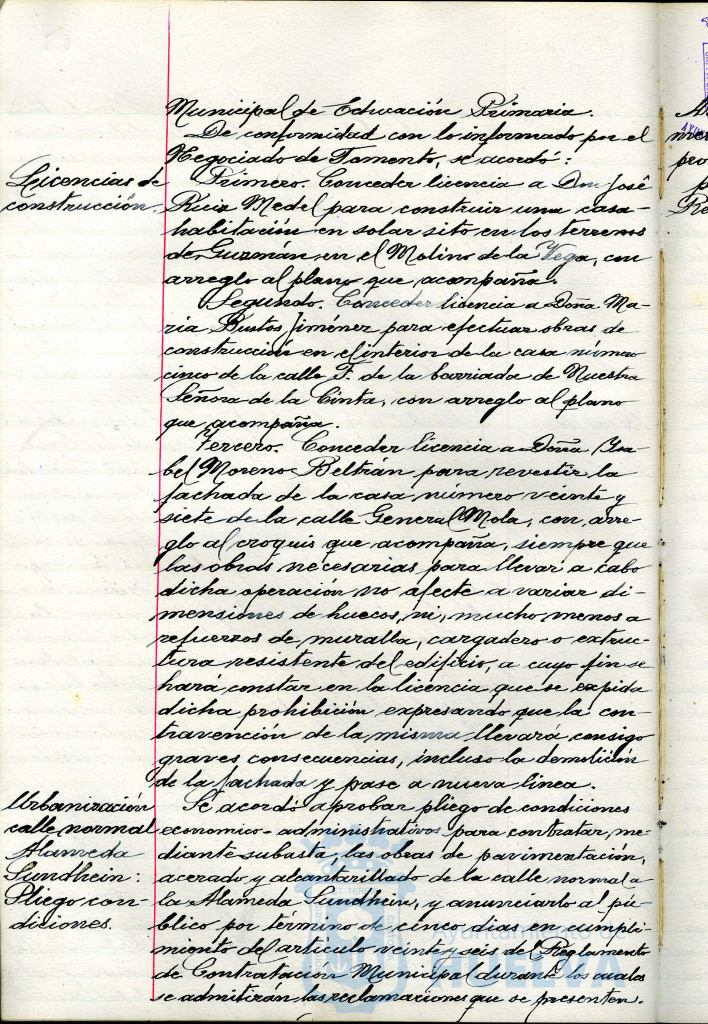 Municipal de Educación Primaria.
De conformidad con lo informado por el
Negociado de Fomento, se acordó:
Licencias de
construcción.
Primero. Conceder licencia a Don José
Medel para construir una casa-
habitación en solar sito en los terrenos
de Guzmán, en el Molino de la Vega, con
arreglo al plano que acompaña.
Segundo. Conceder licencia a Doña Ma-
ria Bustos Jiménez para efectuar obras de
construcción en el interior de la casa número
cinco de la calle F. de la barriada de Nuestra
Señora de la Cinta, con arreglo al plano
que acompaña.
Tercero. Conceder licencia a Doña Isa-
bel Moreno Beltrán para revestir la
fachada de la casa número veinte y
siete de la calle General Mola, con arre-
glo al croquis que acompaña, siempre que
las obras necesarias para llevar a cabo
dicha operación no afecte a variar di-
mensiones de huecos, ni, mucho menos a
refuerzos de muralla, cargadero o extruc-
tura resistente del edificio, a cuyo fin se
hará constar en la licencia que se expida
dicha prohibición expresando que la con-
travención de la misma llevará consigo
graves consecuencias, incluso la demolición
de la fachada y pase a nueva línea.
Urbanización
calle normal
Alameda
Sundhein:
Pliego con-
diciones.
Se acordó aprobar pliego de condiciones
economico-administrativos para contratar, me-
diante subasta, las obras de pavimentación,
acerado y alcantarillado de la calle normal a
la Alameda Sundhein, y anunciarlo al pú-
blico por término de cinco dias en cumpli-
miento del artículo veinte y seis del Reglamento
de Contratación Municipal durante los cuales
se admitirán las reclamaciones que se presenten.
Ayuntamiento
HUELVA